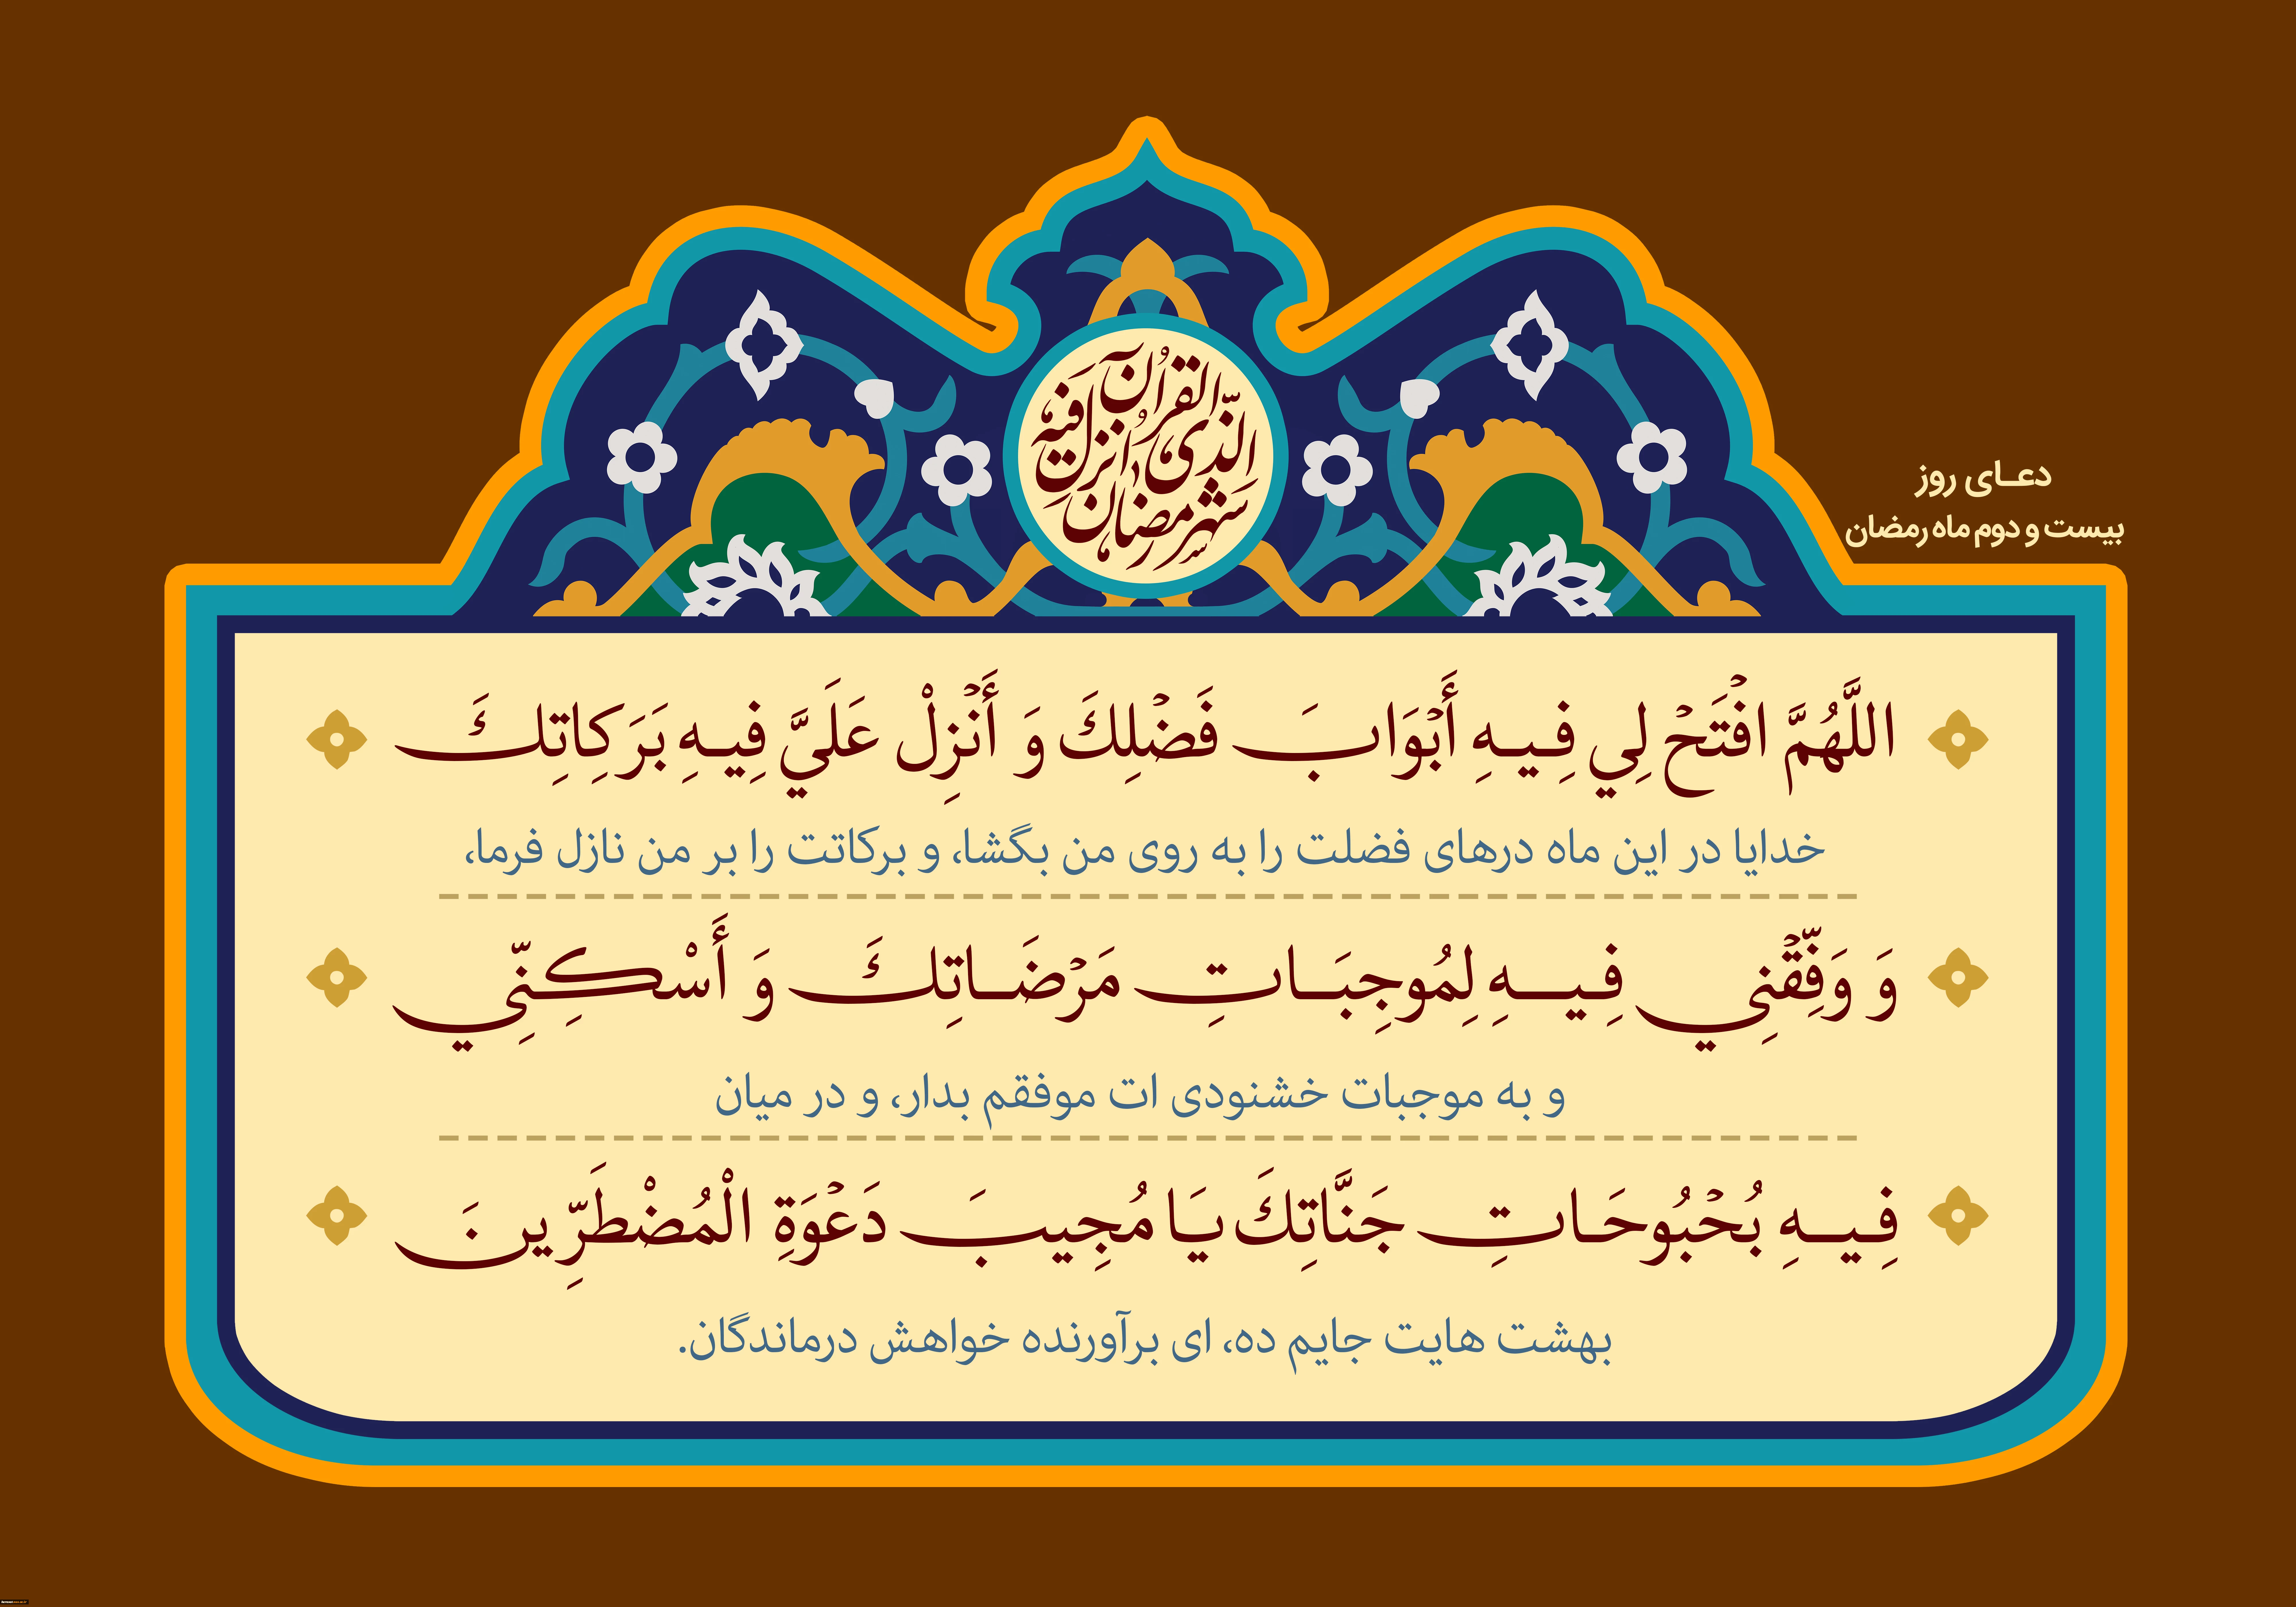 شهر رمضان الذی انزل فیه القرآن
دعای روز
بیست و دوم ماه رمضان
اللَّهُمَّ افْتَحْ لِي فِيهِ أَبْوَابَ فَضْلِكَ وَ أَنْزِلْ عَلَيَّ فِيهِ بَرَكَاتِكَ
خدایا در این ماه درهای فضلت را به روی من بگشا، و برکاتت را بر من نازل فرما،
وَ وَفِّقْنِي فِيهِ لِمُوجِبَاتِ مَرْضَاتِكَ وَ أَسْكِنِّي
و به موجبات خشنودی ات موفقم بدار، و در میان
فِيهِ بُحْبُوحَاتِ جَنَّاتِكَ يَا مُجِيبَ دَعْوَةِ الْمُضْطَرِّينَ
بهشت هایت جایم ده، ای برآورنده خواهش درماندگان.